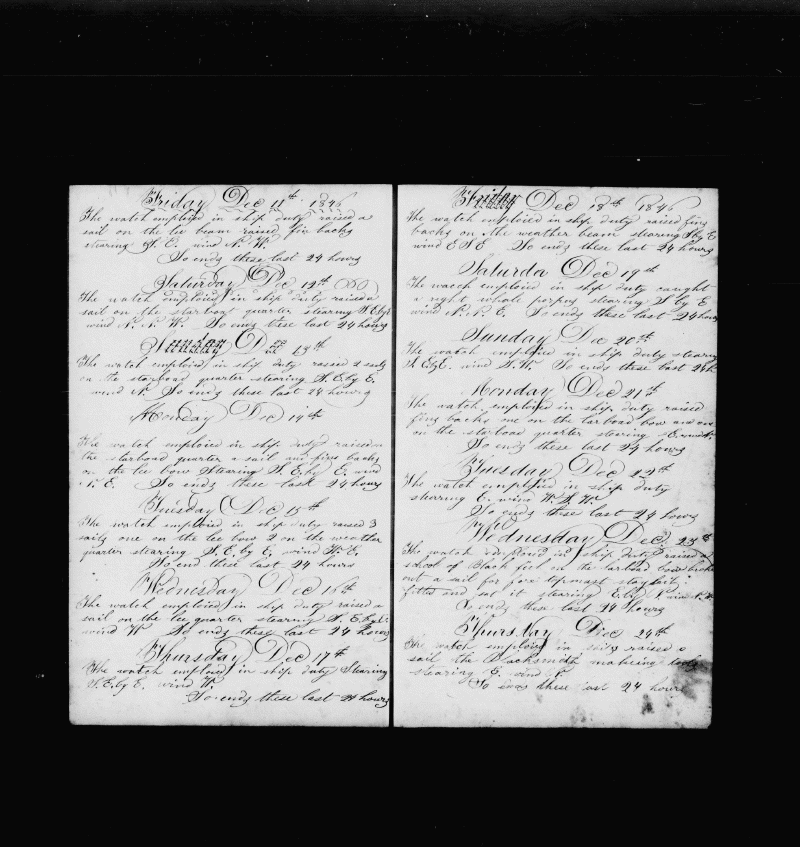 Friday Dec 11th 1846
The watch employed in ship duty raised a
sail on the lee beam raised fin backs
stearing S. E. wind N. W.
So ends these last 24 hours
Saturday Dec 12th
The watch employed in ship duty raised a
sail on the starbord quarter stearing S. E by E
wind N. N. W. So ends these last 24 hours
Sunday Dec 13th
The watch employed in ship duty raised 2 sails
on the starboad quarter stearing S. E by E.
wind N. So ends these last 24 hours
Monday Dec 14th
The watch employed in ship duty raised on
the starboard quarter a sail and fin backs
on the lee bow Stearing S. E. by E. wind
N. E. So ends these last 24 hours
Tuesday Dec 15th
The watch employed in ship duty raised 3
sails one on the lee bow 2 on the weather
quarter stearing S. E. by E. wind
So end these last 24 hours
Wednesday Dec 16th
The watch employed in ship duty raised a
sail on the lee quarter stearing S. E by E
wind W So ends these last 24 hours
Thursday Dec 17th
The watch employed in ship duty Stearing
S. E. by E. wind W.
So ends these last 24 hours
Friday Dec 18th 1846
The watch employed in ship duty raised fin
backs on the weather beam stearing S by E
wind E S E So ends these last 24 hours
Saturda Dec 19th
The watch employed in ship duty caught
a right whale porpus stearing S by E
wind N. E. So ends these last 24 hours
Sunday Dec 20th
The watch employed in ship duty stearing
wind S. W. So ends these last 24 h
Monday Dec 21th
The watch employed in ship duty raised
fin backs one on the larboad bow and one
on the starboad quarter stearing E. wind
So ends these last 24 hours
Tuesday Dec 22th
The watch employed in ship duty
stearing E. wind W. S. W.
So ends these last 24 hours
Wednesday Dec. 23th
The watch employed in ship duty raised a
school of Black fish on the larboad bow broke
out a sail for fore topmast stay sail
fitted and set it stearing E. by N wind
So ends these last 24 hours
Thursday Dec 24th
The watch employed in raised a
sail the Blacksmith making
stearing E. wind
So ends these last 24 hours